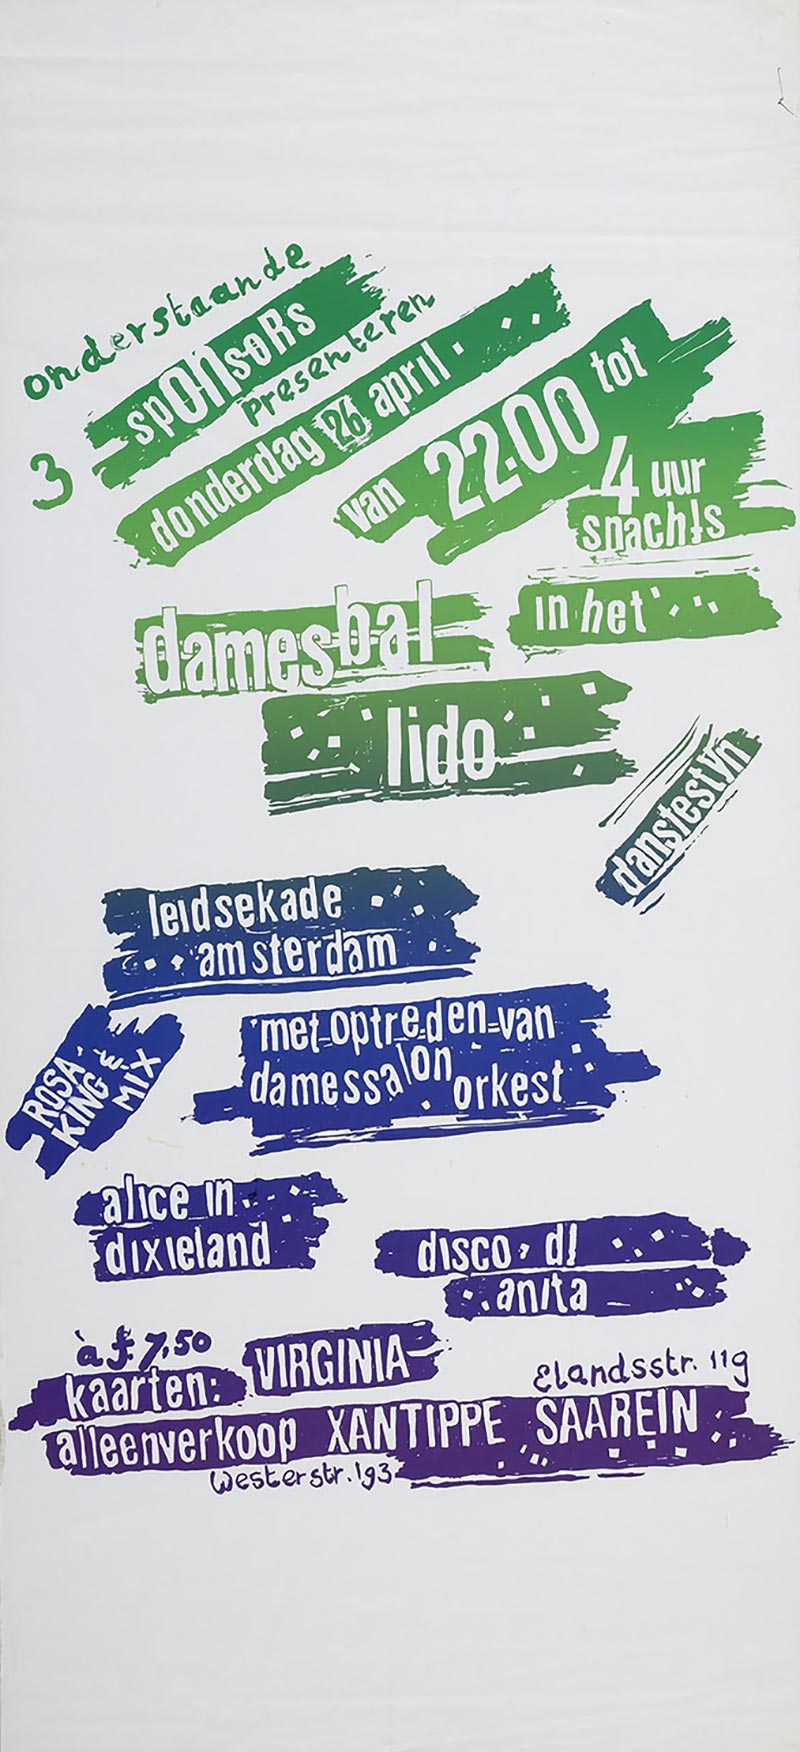 onderstaande
3 sponsors
presenteren
donderdag 26 april
van 22.00 tot
4 uur
snachts
damesbal
in het
lido
dansfestyn
leidsekade
amsterdam
met optreden van
damessalon orkest
ROSA
KING &
MIX
alice in
dixieland
disco dj
anita
à f 7,50
kaarten: VIRGINIA
Elandsstr. 119
alleenverkoop XANTIPPE SAAREIN
Westerstr. 193